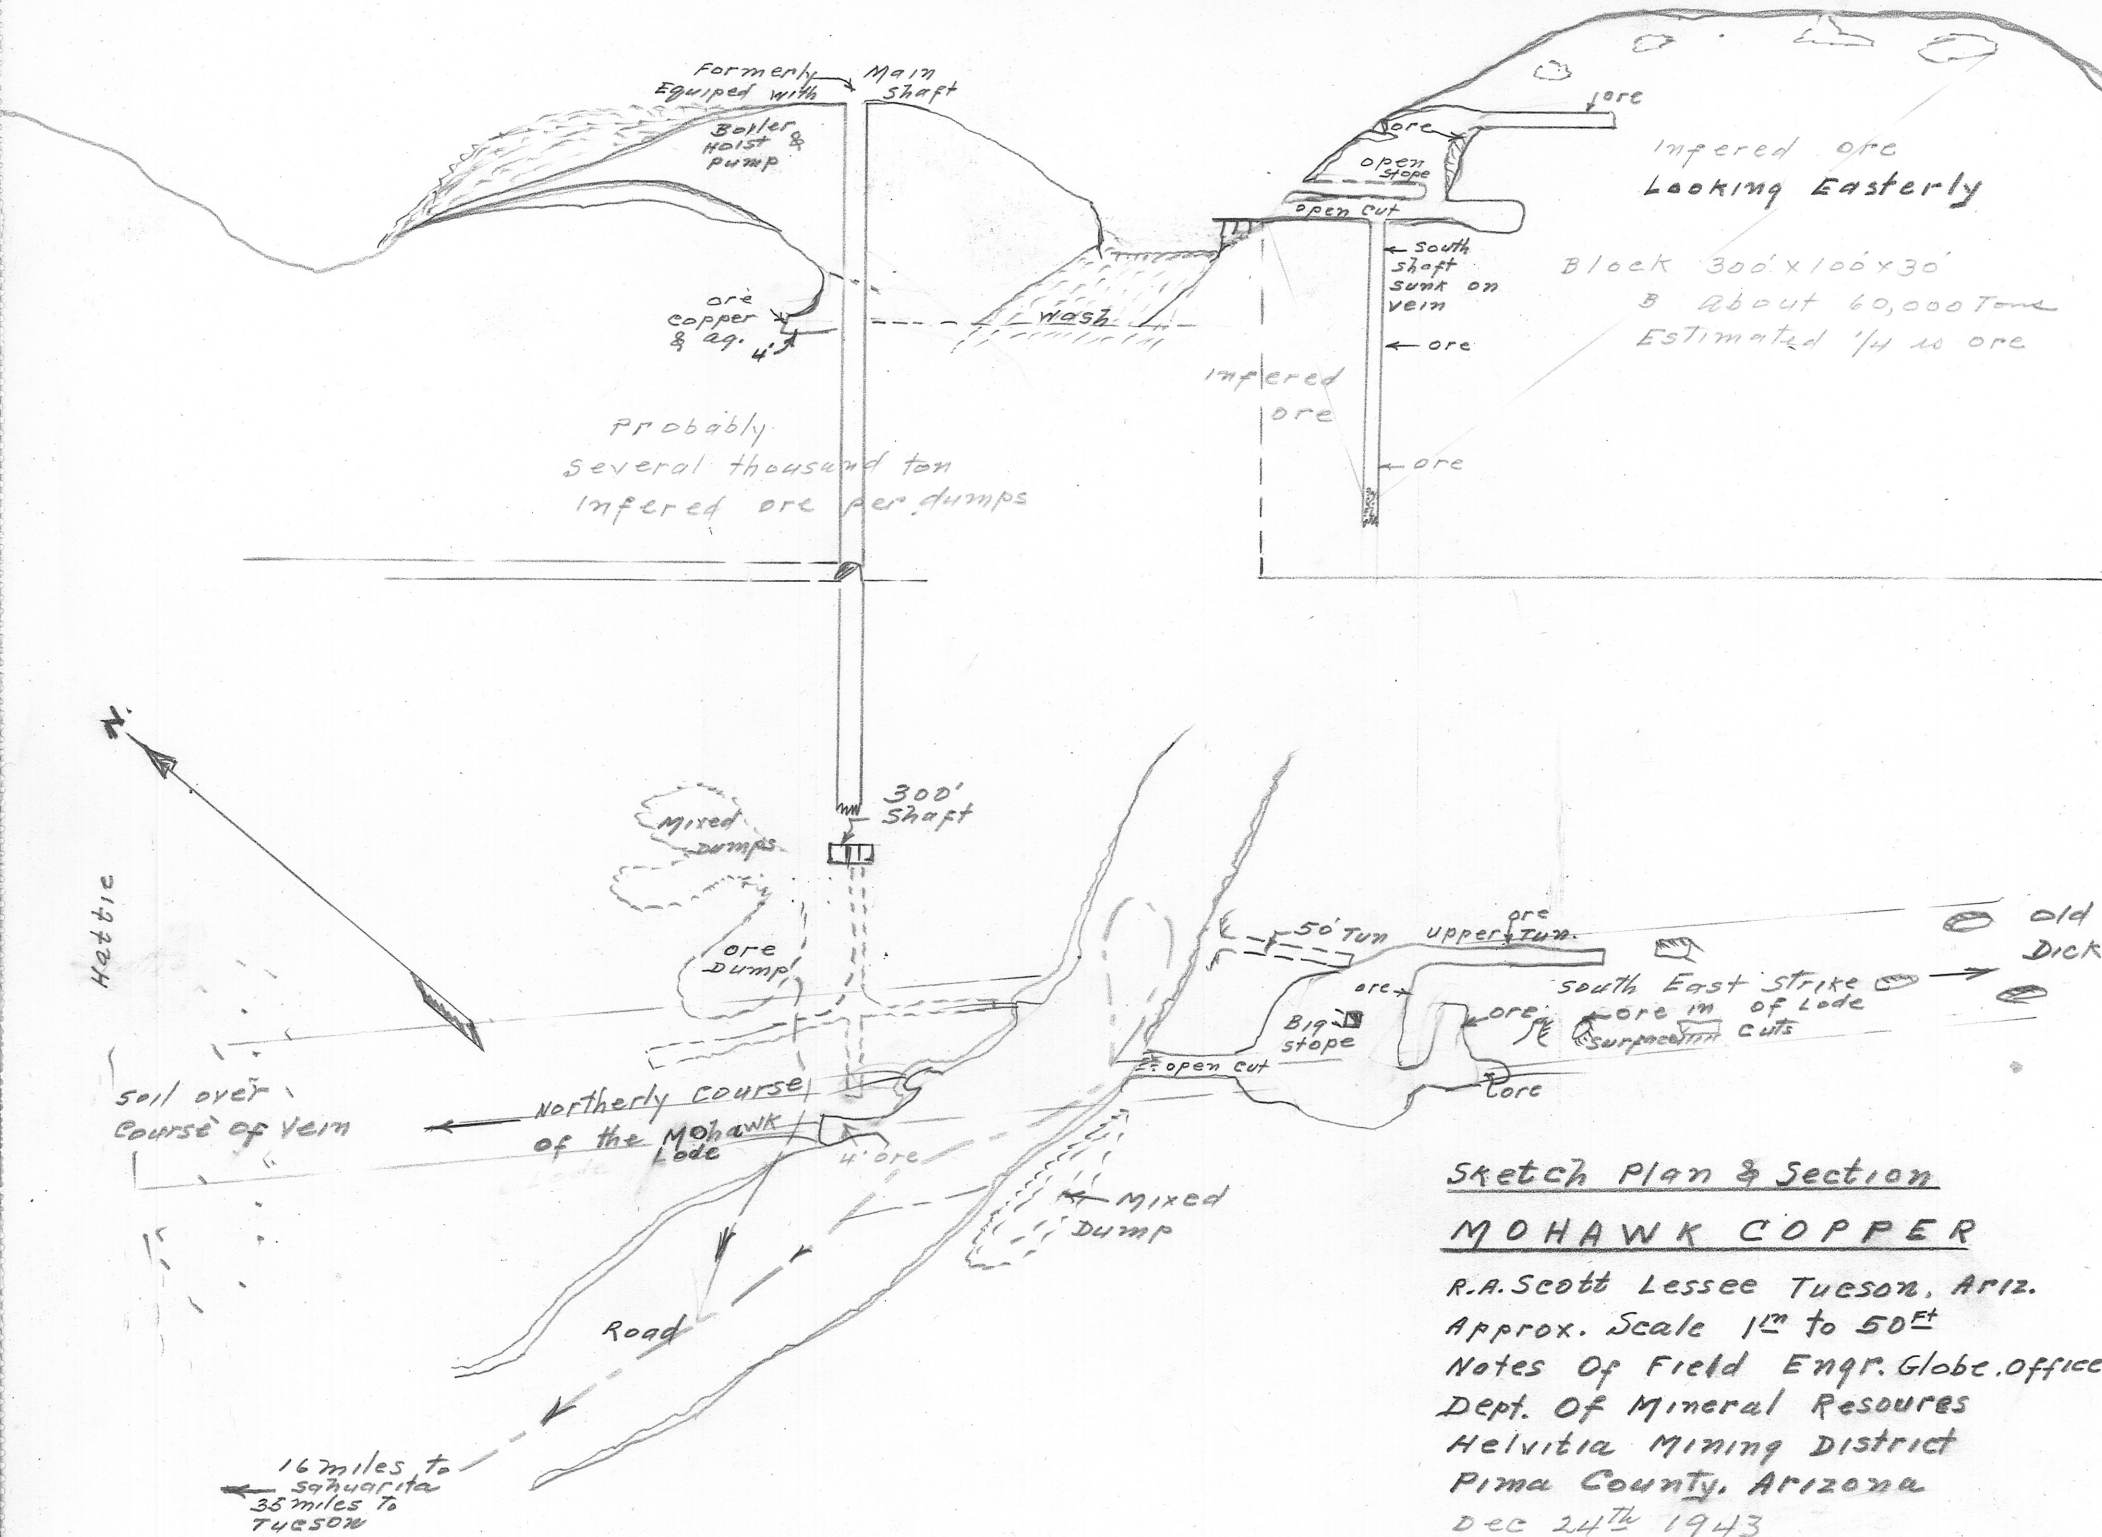 Formerly
Equiped with
Boiler
Hoist &
Pump
Main
Shaft
ore
ore
open
stope
open cut
Infered ore
Looking Easterly
south
shaft
sunk on
vein
ore
ore
Block 300'x100'x30'
B About 60,000 Tons
Estimated 1/4 is ore
ore
copper
& ag.
4'
wash
Infered
ore
Probably
several thousand ton
Infered ore per dumps
N.
Hattie
300'
Shaft
Mixed
Dumps
ore
Dump
50' Tun
ore
upper Tun.
ore
Big
stope
ore
ore in
surface cuts
South East Strike
of Lode
Old
Dick
open cut
ore
Soil over
Course of vein
Northerly Course
of the Mohawk
Lode
Lode
4' ore
Mixed
Dump
Road
16 miles to
Sahuarita
35 miles to
Tucson
Sketch Plan & Section
MOHAWK COPPER
R.A. Scott Lessee Tucson, Ariz.
Approx. Scale 1in to 50Ft
Notes Of Field Engr. Globe. Office
Dept. Of Mineral Resoures
Helvitia Mining District
Pima County, Arizona
Dec 24Th 1943